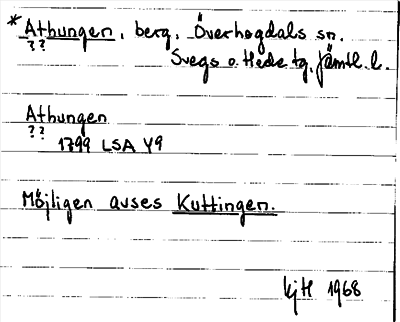 * Athungen, berg, Överhogdals sn.
??
Svegs o. Hede tg, Jämtl. l.
Athungen
??
1799 LSA Y9
Möjligen avses Kuttingen.
KjH 1968